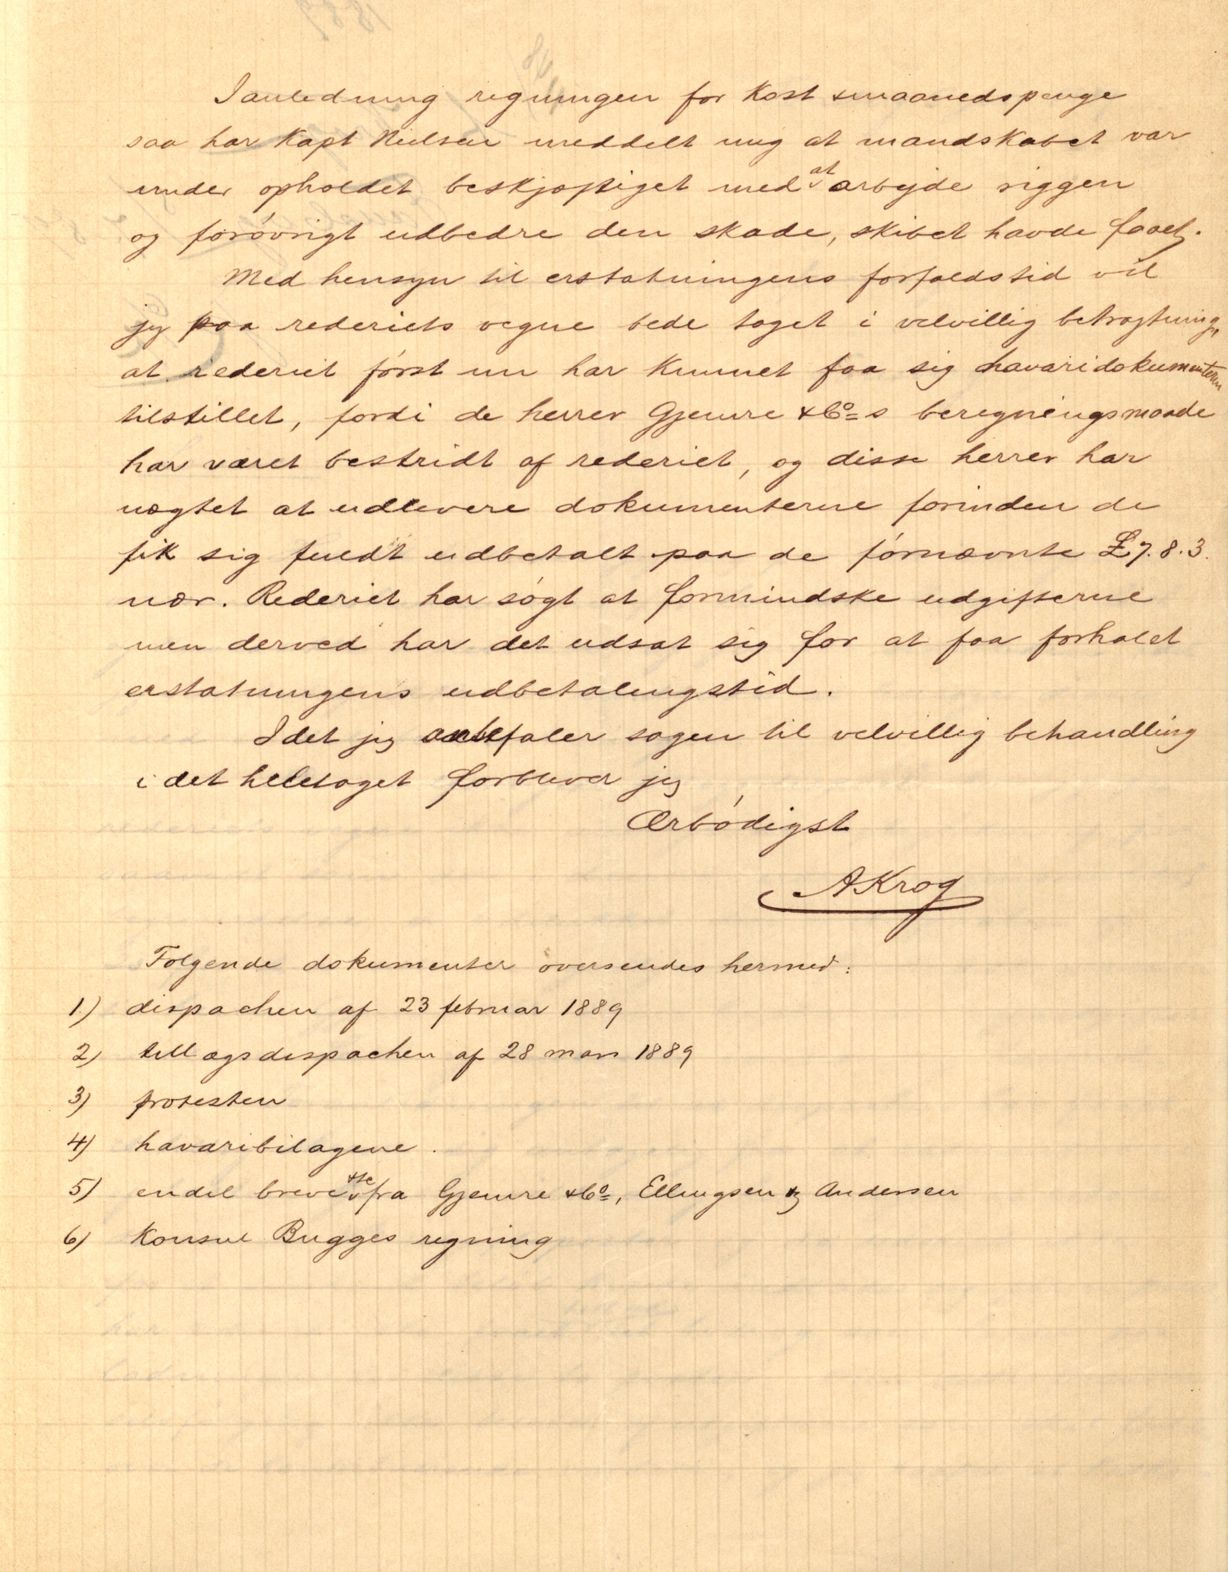 I anledning regningen for Kost & maanedspenge
saa har Kapt Nielsen meddelt mig at mandskabet var
under opholdet beskjæftiget med at arbejde riggen
og forøvrigt udbedre den skade, skibet havde faaet.
Med hensyn til erstatningens forfaldstid vil
jeg paa rederiets vegne bede taget i velvillig betragtning,
at rederiet først nu har kunnet faa sig havaridokumenterne
tilstillet, fordi de herrer Gjemre & Co s beregningsmaade
har været bestridt af rederiet, og disse herrer har
nægtet at udlevere dokumenterne forinden de
fik sig fuldt udbetalt paa de førnævnte £7.8.3.
nær. Rederiet har søgt at formindske udgifterne
men derved har det udsat sig for at faa forhalet
erstatningens udbetalingstid.
Idet jeg anbefaler sagen til velvillig behandling
i det heletaget forbliver jeg
Ærbødigst
AKrog
Følgende dokumenter oversendes hermed:
1) dispachen af 23 februar 1889
2) tillægsdispachen af 28 mars 1889
3) protesten
4) havaribilagene.
5) endel breve fra Gjemre & Co, Ellingsen & Andersen
6) Konsul Bugges regning